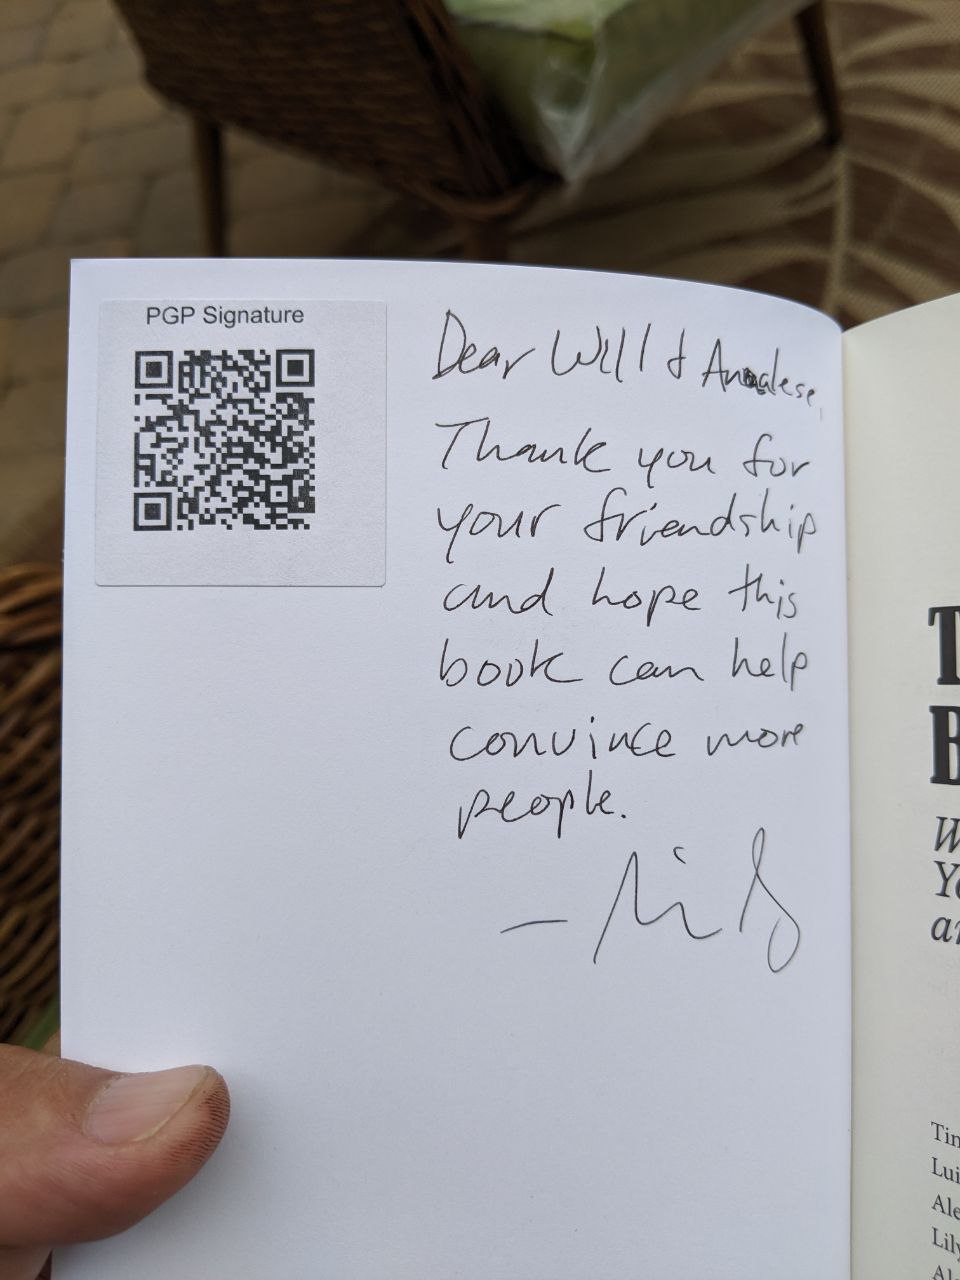 PGP Signature
Dear Will & Annalese,
Thank you for
your friendship
and hope this
book can help
convince more
people.
T
B
W
Yo
an
Tin
Lui
Ale
Lily